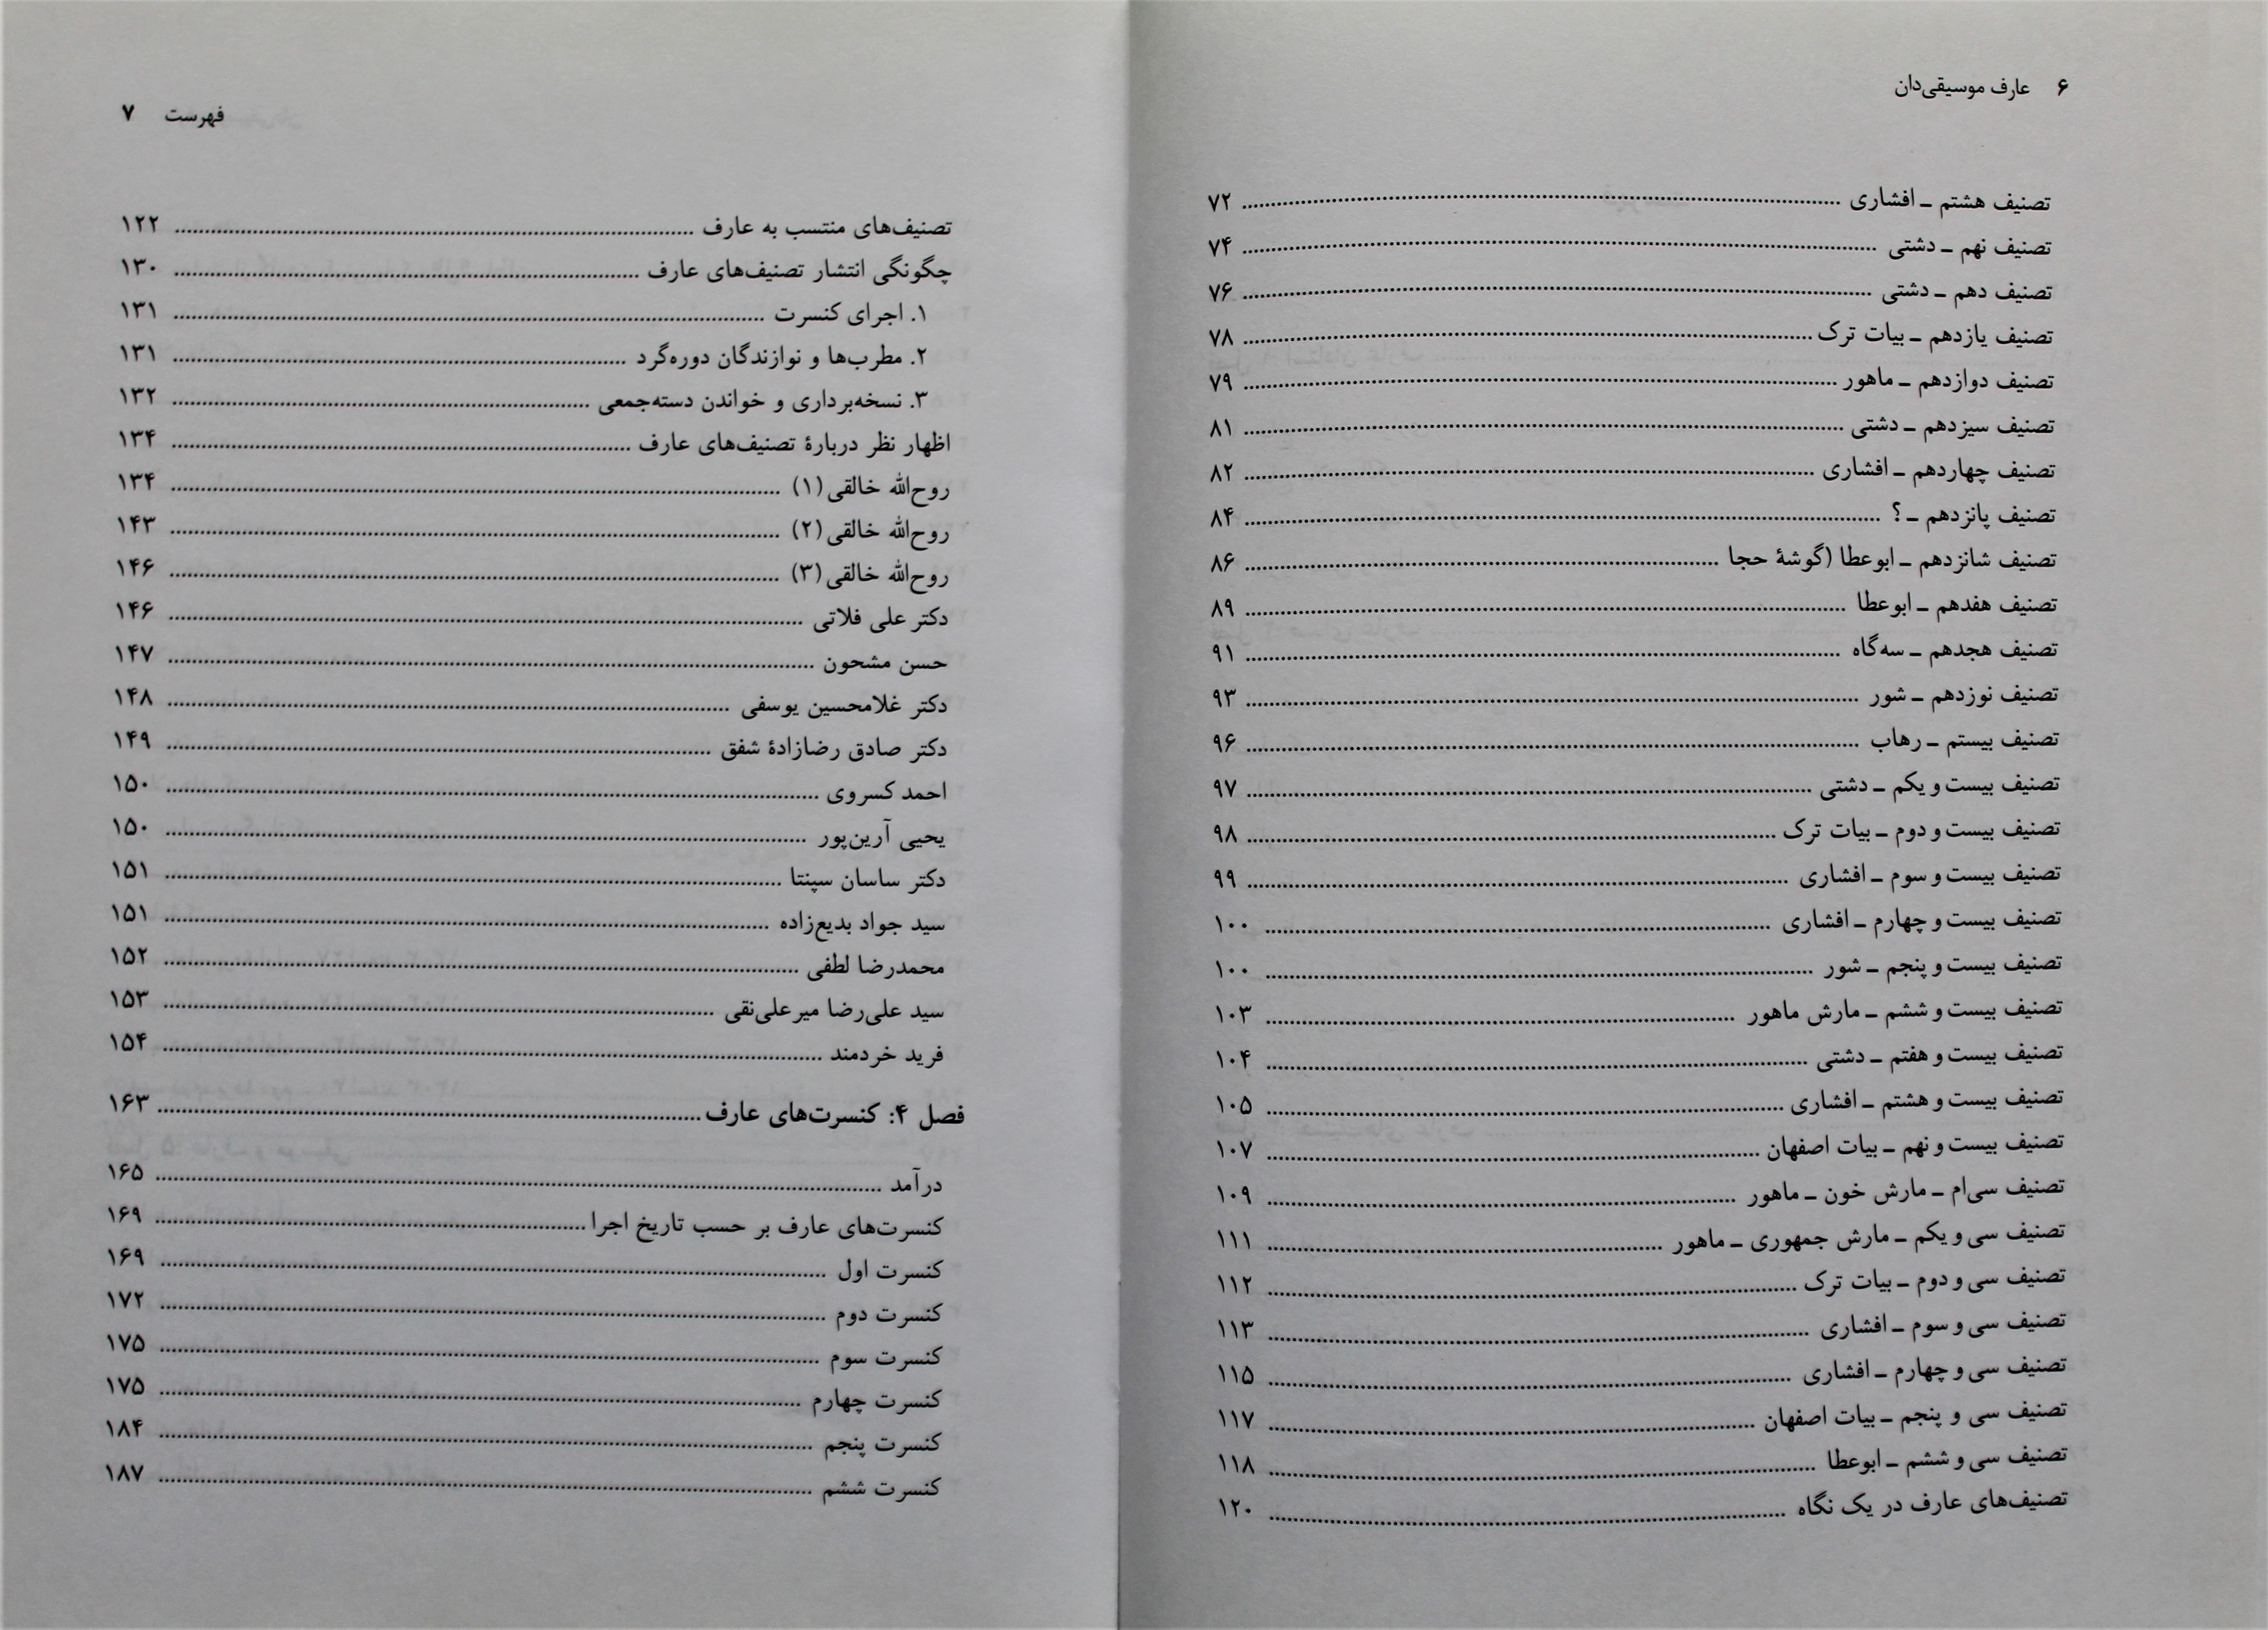 ۶ عارف موسیقی‌دان
تصنیف هشتم ـ افشاری ........ ۷۲
تصنیف نهم ـ دشتی ........ ۷۴
تصنیف دهم ـ دشتی ........ ۷۶
تصنیف یازدهم ـ بیات ترک ........ ۷۸
تصنیف دوازدهم ـ ماهور ........ ۷۹
تصنیف سیزدهم ـ دشتی ........ ۸۱
تصنیف چهاردهم ـ افشاری ........ ۸۲
تصنیف پانزدهم ـ ؟ ........ ۸۴
تصنیف شانزدهم ـ ابوعطا (گوشهٔ حجا ........ ۸۶
تصنیف هفدهم ـ ابوعطا ........ ۸۹
تصنیف هجدهم ـ سه‌گاه ........ ۹۱
تصنیف نوزدهم ـ شور ........ ۹۳
تصنیف بیستم ـ رهاب ........ ۹۶
تصنیف بیست و یکم ـ دشتی ........ ۹۷
تصنیف بیست و دوم ـ بیات ترک ........ ۹۸
تصنیف بیست و سوم ـ افشاری ........ ۹۹
تصنیف بیست و چهارم ـ افشاری ........ ۱۰۰
تصنیف بیست و پنجم ـ شور ........ ۱۰۰
تصنیف بیست و ششم ـ مارش ماهور ........ ۱۰۳
تصنیف بیست و هفتم ـ دشتی ........ ۱۰۴
تصنیف بیست و هشتم ـ افشاری ........ ۱۰۵
تصنیف بیست و نهم ـ بیات اصفهان ........ ۱۰۷
تصنیف سی‌ام ـ مارش خون ـ ماهور ........ ۱۰۹
تصنیف سی و یکم ـ مارش جمهوری ـ ماهور ........ ۱۱۱
تصنیف سی و دوم ـ بیات ترک ........ ۱۱۲
تصنیف سی و سوم ـ افشاری ........ ۱۱۳
تصنیف سی و چهارم ـ افشاری ........ ۱۱۵
تصنیف سی و پنجم ـ بیات اصفهان ........ ۱۱۷
تصنیف سی و ششم ـ ابوعطا ........ ۱۱۸
تصنیف‌های عارف در یک نگاه ........ ۱۲۰
فهرست ۷
تصنیف‌های منتسب به عارف ........ ۱۲۲
چگونگی انتشار تصنیف‌های عارف ........ ۱۳۰
۱. اجرای کنسرت ........ ۱۳۱
۲. مطرب‌ها و نوازندگان دوره‌گرد ........ ۱۳۱
۳. نسخه‌برداری و خواندن دسته‌جمعی ........ ۱۳۲
اظهار نظر دربارهٔ تصنیف‌های عارف ........ ۱۳۴
روح‌الله خالقی (۱) ........ ۱۳۴
روح‌الله خالقی (۲) ........ ۱۴۳
روح‌الله خالقی (۳) ........ ۱۴۶
دکتر علی فلاتی ........ ۱۴۶
حسن مشحون ........ ۱۴۷
دکتر غلامحسین یوسفی ........ ۱۴۸
دکتر صادق رضازادهٔ شفق ........ ۱۴۹
احمد کسروی ........ ۱۵۰
یحیی آرین‌پور ........ ۱۵۰
دکتر ساسان سپنتا ........ ۱۵۱
سید جواد بدیع‌زاده ........ ۱۵۱
محمدرضا لطفی ........ ۱۵۲
سید علی‌رضا میرعلی‌نقی ........ ۱۵۳
فرید خردمند ........ ۱۵۴
فصل ۴: کنسرت‌های عارف ........ ۱۶۳
درآمد ........ ۱۶۵
کنسرت‌های عارف بر حسب تاریخ اجرا ........ ۱۶۹
کنسرت اول ........ ۱۶۹
کنسرت دوم ........ ۱۷۲
کنسرت سوم ........ ۱۷۵
کنسرت چهارم ........ ۱۷۵
کنسرت پنجم ........ ۱۸۴
کنسرت ششم ........ ۱۸۷